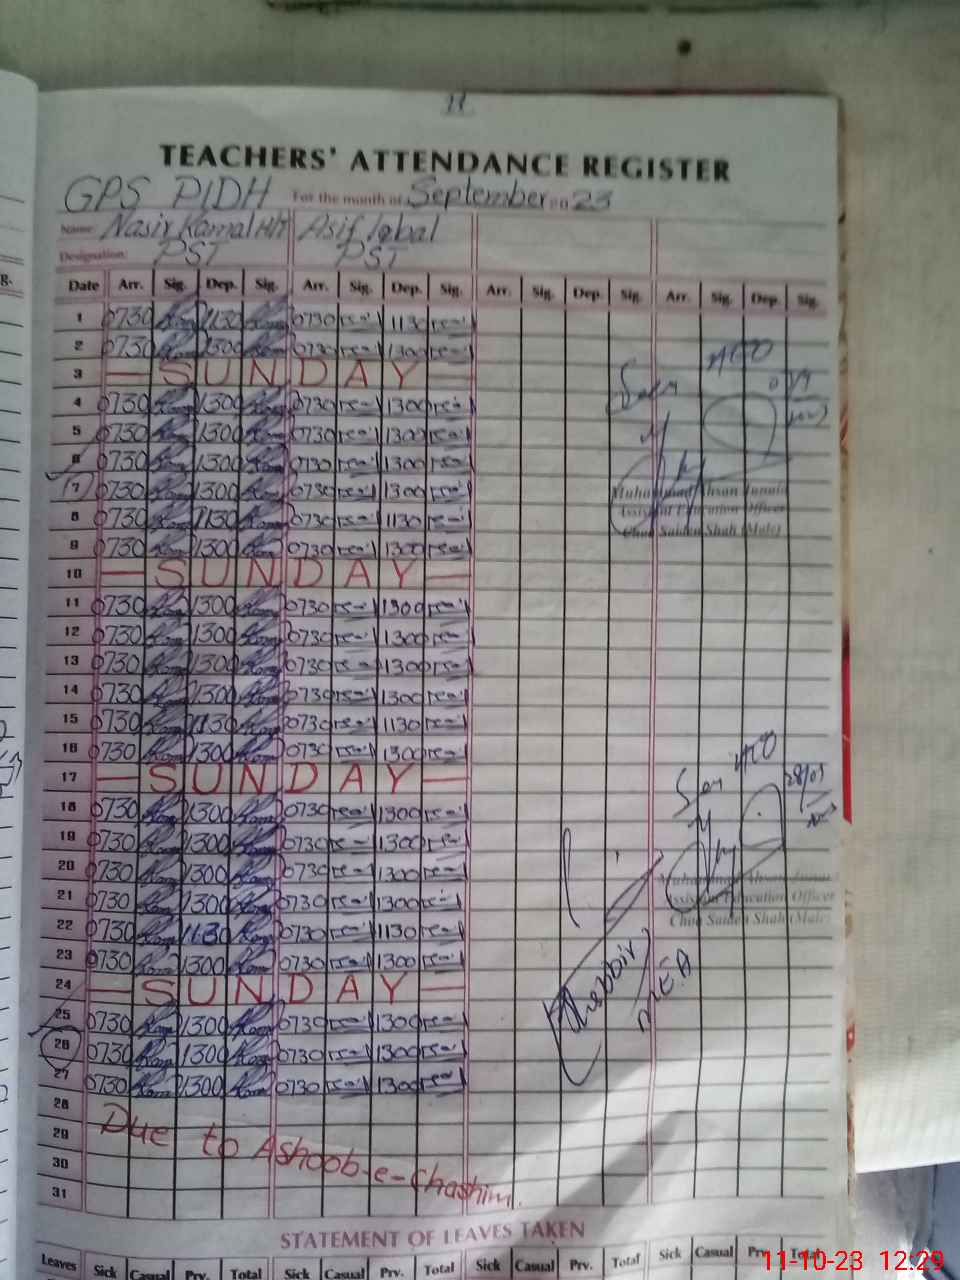 11
TEACHERS' ATTENDANCE REGISTER
GPS PIDH For the month of September 2023
Name: Nasir Kamal HT Asif Iqbal
Designation: PST PST
Date Arr. Sig. Dep. Sig. Arr. Sig. Dep. Sig. Arr. Sig. Dep. Sig. Arr. Sig. Dep. Sig.
1 0730 1130 0730 1130
2 0730 1300 0730 1300
3 — SUNDAY —
4 0730 1300 0730 1300
5 0730 1300 0730 1300
6 0730 1300 0730 1300
7 0730 1300 0730 1300
8 0730 1130 0730 1130
9 0730 1300 0730 1300
10 — SUNDAY —
11 0730 1300 0730 1300
12 0730 1300 0730 1300
13 0730 1300 0730 1300
14 0730 1300 0730 1300
15 0730 1130 0730 1130
16 0730 1300 0730 1300
17 — SUNDAY —
18 0730 1300 0730 1300
19 0730 1300 0730 1300
20 0730 1300 0730 1300
21 0730 1300 0730 1300
22 0730 1130 0730 1130
23 0730 1300 0730 1300
24 — SUNDAY —
25 0730 1300 0730 1300
26 0730 1300 0730 1300
27 0730 1300 0730 1300
28
29
30
31
Due to Ashoob-e-Chashim.
Assistant Education Officer
Choa Saiden Shah (Male)
Assistant Education Officer
Choa Saiden Shah (Male)
M.E.A
STATEMENT OF LEAVES TAKEN
Leaves Sick Casual Prv. Total Sick Casual Prv. Total Sick Casual Prv. Total Sick Casual Prv. Total
11-10-23 12:29